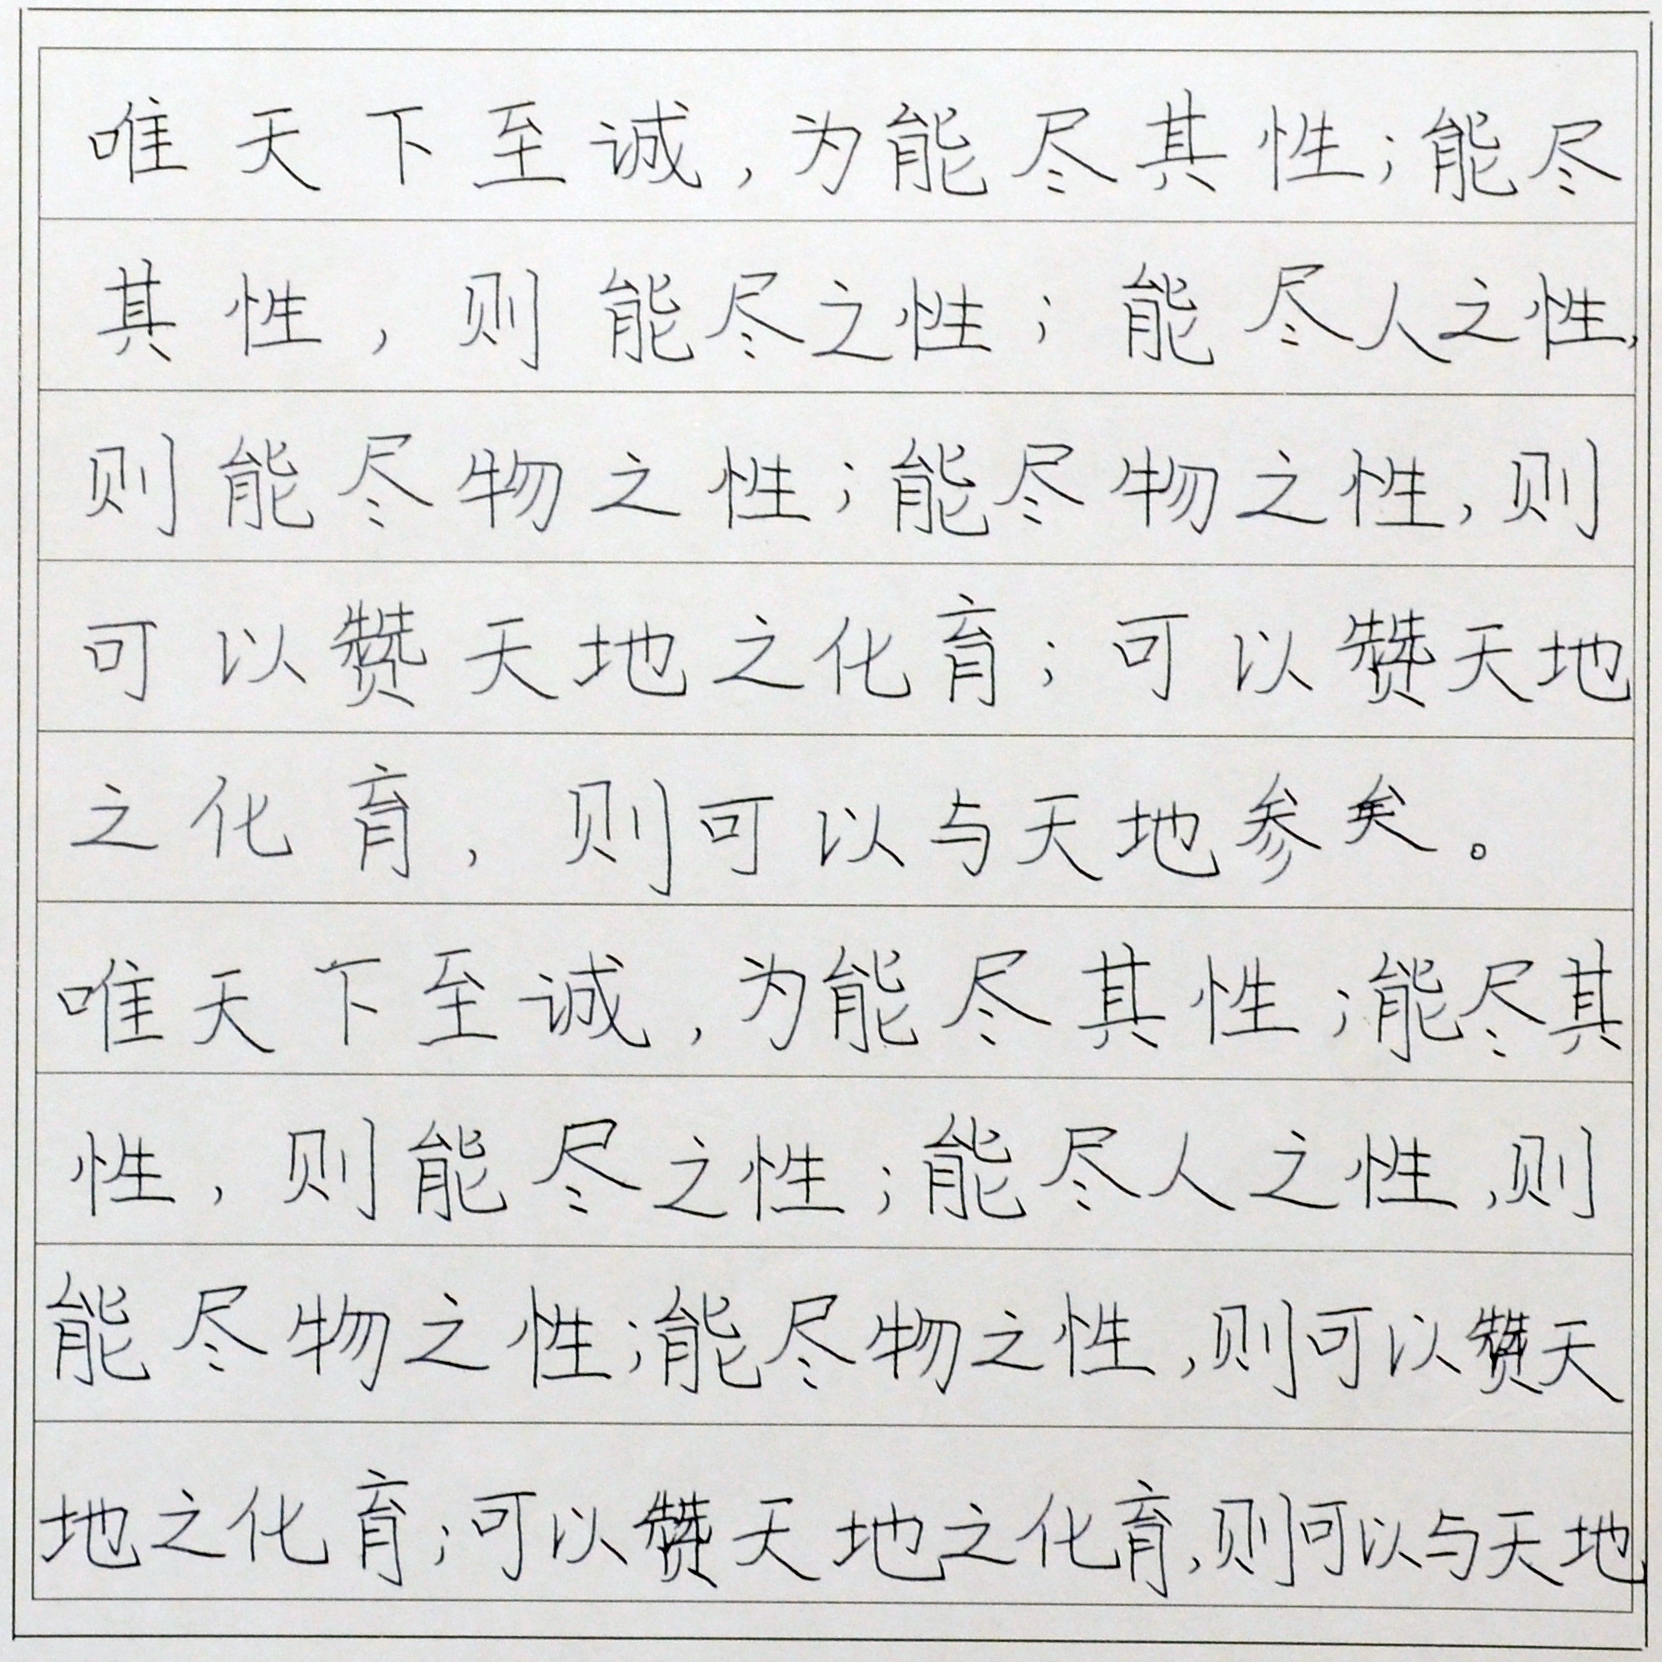 唯天下至诚,为能尽其性;能尽
其性,则能尽之性;能尽人之性,
则能尽物之性;能尽物之性,则
可以赞天地之化育;可以赞天地
之化育,则可以与天地参矣。
唯天下至诚,为能尽其性;能尽其
性,则能尽之性;能尽人之性,则
能尽物之性;能尽物之性,则可以赞天
地之化育;可以赞天地之化育,则可以与天地